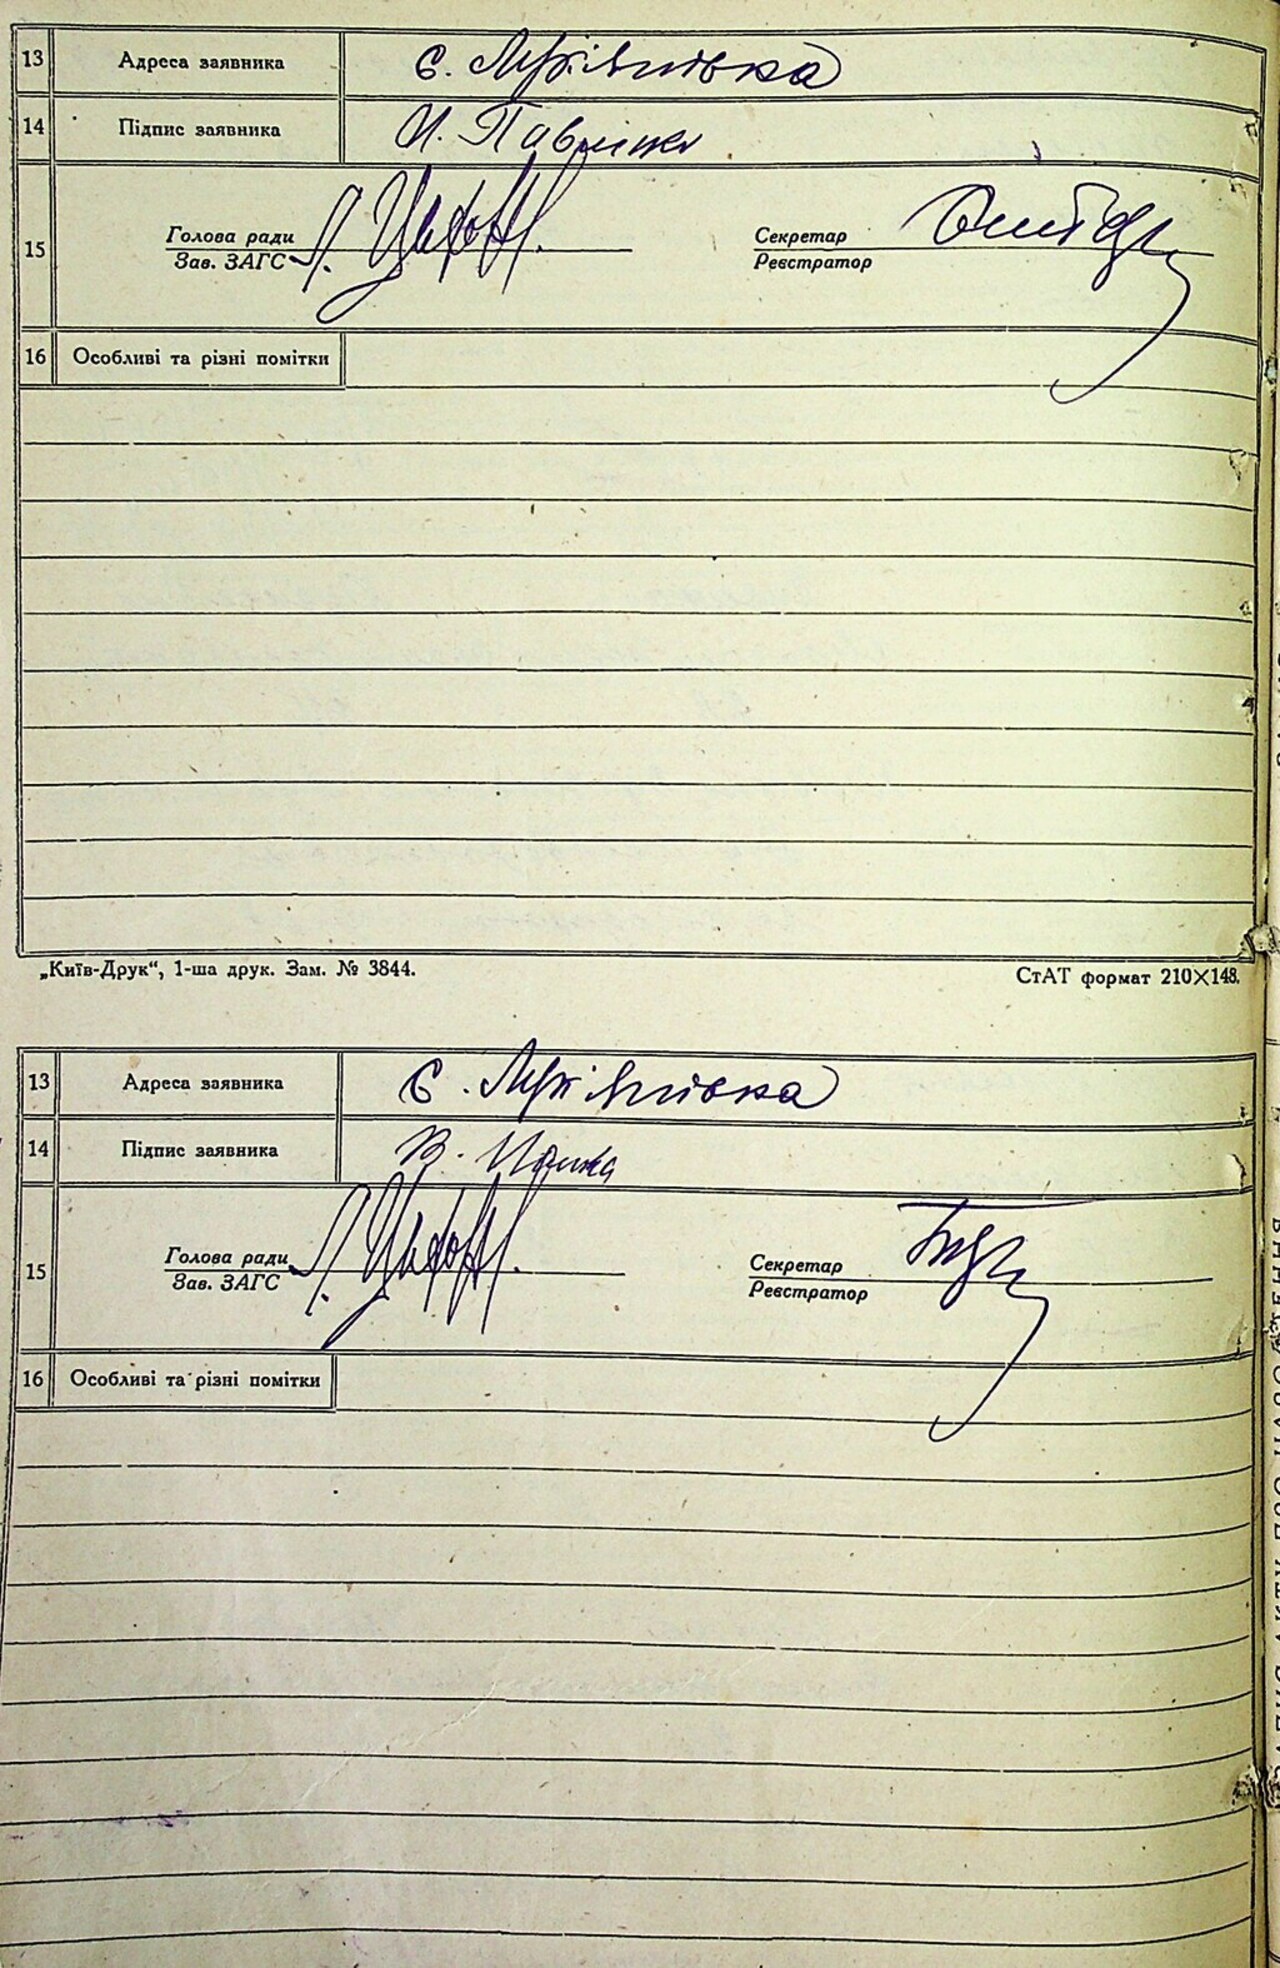 13 Адреса заявника с. Лук'янівка
14 Підпис заявника
15 Голова ради
Зав. ЗАГС
Секретар
Реєстратор
16 Особливі та різні помітки
„Київ-Друк“, 1-ша друк. Зам. № 3844. СтАТ формат 210×148.
13 Адреса заявника с. Лук'янівка
14 Підпис заявника В.
15 Голова ради
Зав. ЗАГС
Секретар
Реєстратор
16 Особливі та різні помітки